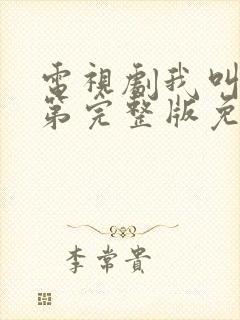 電視劇我叫
第完整版免
李常貴